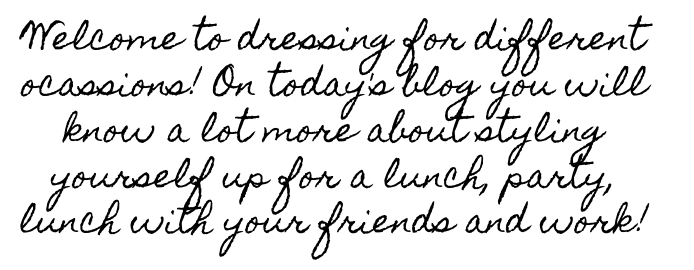 Welcome to dressing for different
ocassions! On today's blog you will
know a lot more about styling
yourself up for a lunch, party,
lunch with your friends and work!